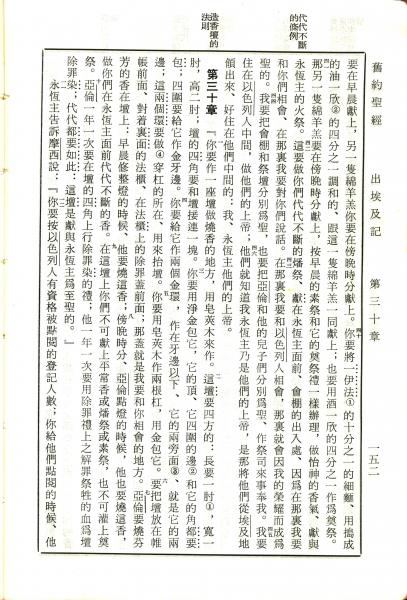 舊約聖經　出埃及記　第三十章　一五二
代代不斷
的條例
要在早晨獻上，另一隻綿羊羔你要在傍晚時分獻上。你要將一伊法①的十分之一的細麵、用搗成
的油一欣②的四分之一調和的、跟這一隻綿羊羔一同獻上，也要用酒一欣的四分之一作爲奠祭。
那另一隻綿羊羔要在傍晚時分獻上，按早晨的素祭和它的奠祭禮一樣辦理，做怡神的香氣、獻與
永恆主的火祭。這要做你們代代不斷的燔祭、獻在永恆主面前、會棚的出入處、因爲在那裏我要
和你們相會、在那裏我要對你們說話。在那裏我要和以色列人相會，那裏就會因我的榮耀而成爲
聖的。我要把會棚和祭壇分別爲聖，也要把亞倫和他的兒子們分別爲聖、作祭司來事奉我。我要
住在以色列人中間，做他們的上帝；他們就知道我永恆主乃是他們的上帝，是那將他們從埃及地
領出來、好住在他們中間的：我、永恆主他們的上帝。
造香壇的
法則
第三十章　「你要作一座壇做燒香的地方，用皂莢木來作。這壇要四方的：長要一肘①，寬一
肘，高二肘；壇的四角要和壇接連一塊。你要用淨金包它，它的頂、它四圍的邊②和它的角都要
包；四圍要給它作金牙邊。你要給它作兩個金環，作在牙邊以下、它的兩旁面③，就是它的兩
邊；這兩邊要做④穿杠的所在，用來抬壇。你要用皂莢木作兩根杠，用金包它。要把壇放在帷
帳前面，對着裏面的法櫃、在法櫃上的除罪蓋前面；那蓋就是我要和你相會的地方。亞倫要燒芬
芳的香在壇上：早晨修整燈的時候，他要燒這香；傍晚時分、亞倫點燈的時候，他也要燒這香，
做你們在永恆主面前代代不斷的香。在這壇上你們不可獻上平常香或燔祭或素祭，也不可灌上奠
祭。亞倫一年一次要在壇的四角上行除罪染的禮；他一年一次要用除罪禮上之解罪祭牲的血爲壇
除罪染；代代都要如此：這壇是獻與永恆主爲至聖的。」
永恆主告訴摩西說：「你要按以色列人有資格被點閱的登記人數；你給他們點閱的時候、他